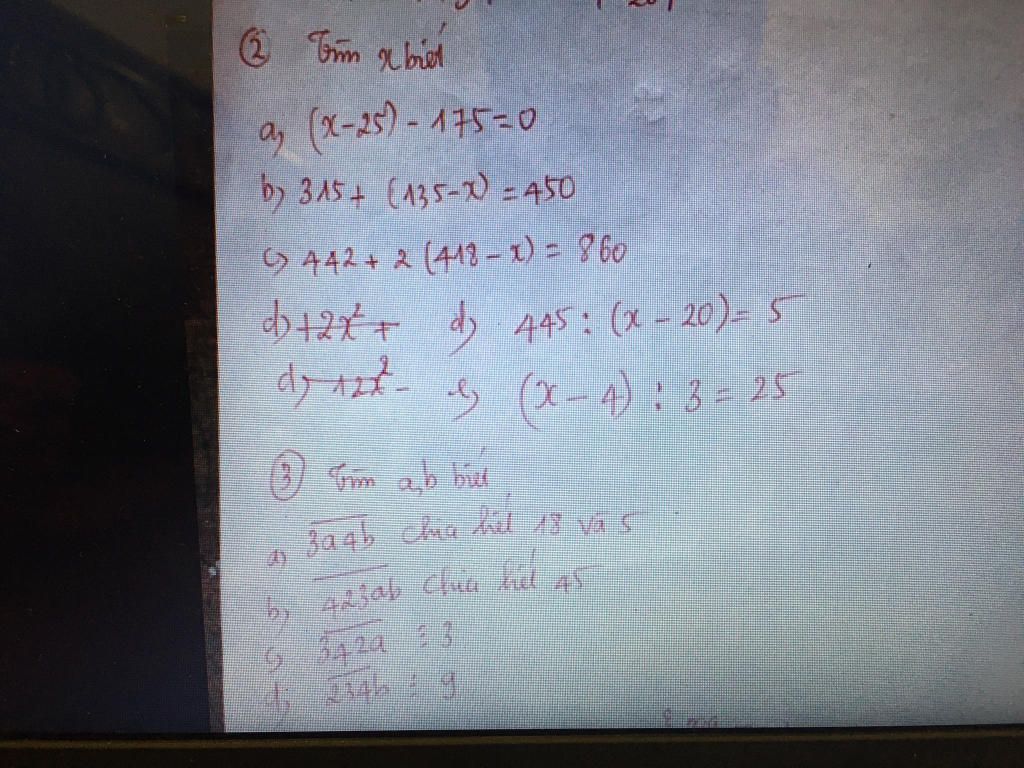 ② Tìm x biết
a) (x-25) - 175 = 0
b) 315 + (135-x) = 450
c) 442 + 2 (418 - x) = 860
d) +2x² + d) 445 : (x - 20) = 5
d) 12x² - e) (x - 4) : 3 = 25
③ Tìm a,b biết
a) 3a4b chia hết 18 và 5
b) 423ab chia hết 45
c) 342a ⋮ 3
d) 234b ⋮ 9